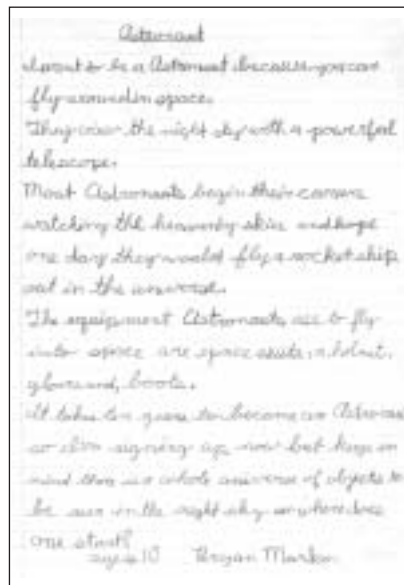 Astronaut
I want to be a Astronaut because you can
fly around in space.
They view the night sky with a powerful
telescope.
Most Astronauts begin their careers
watching the heavenly skies and hope
one day they would fly a rocket ship
out in the universe.
The equipment Astronauts use to fly
into space are space suits, a helmet,
gloves and, boots.
It takes ten years to become an Astronaut
so I'm signing up now but keep in
mind there is a whole universe of objects to
be seen in the night sky so where does
one start?
age 10 Bryan